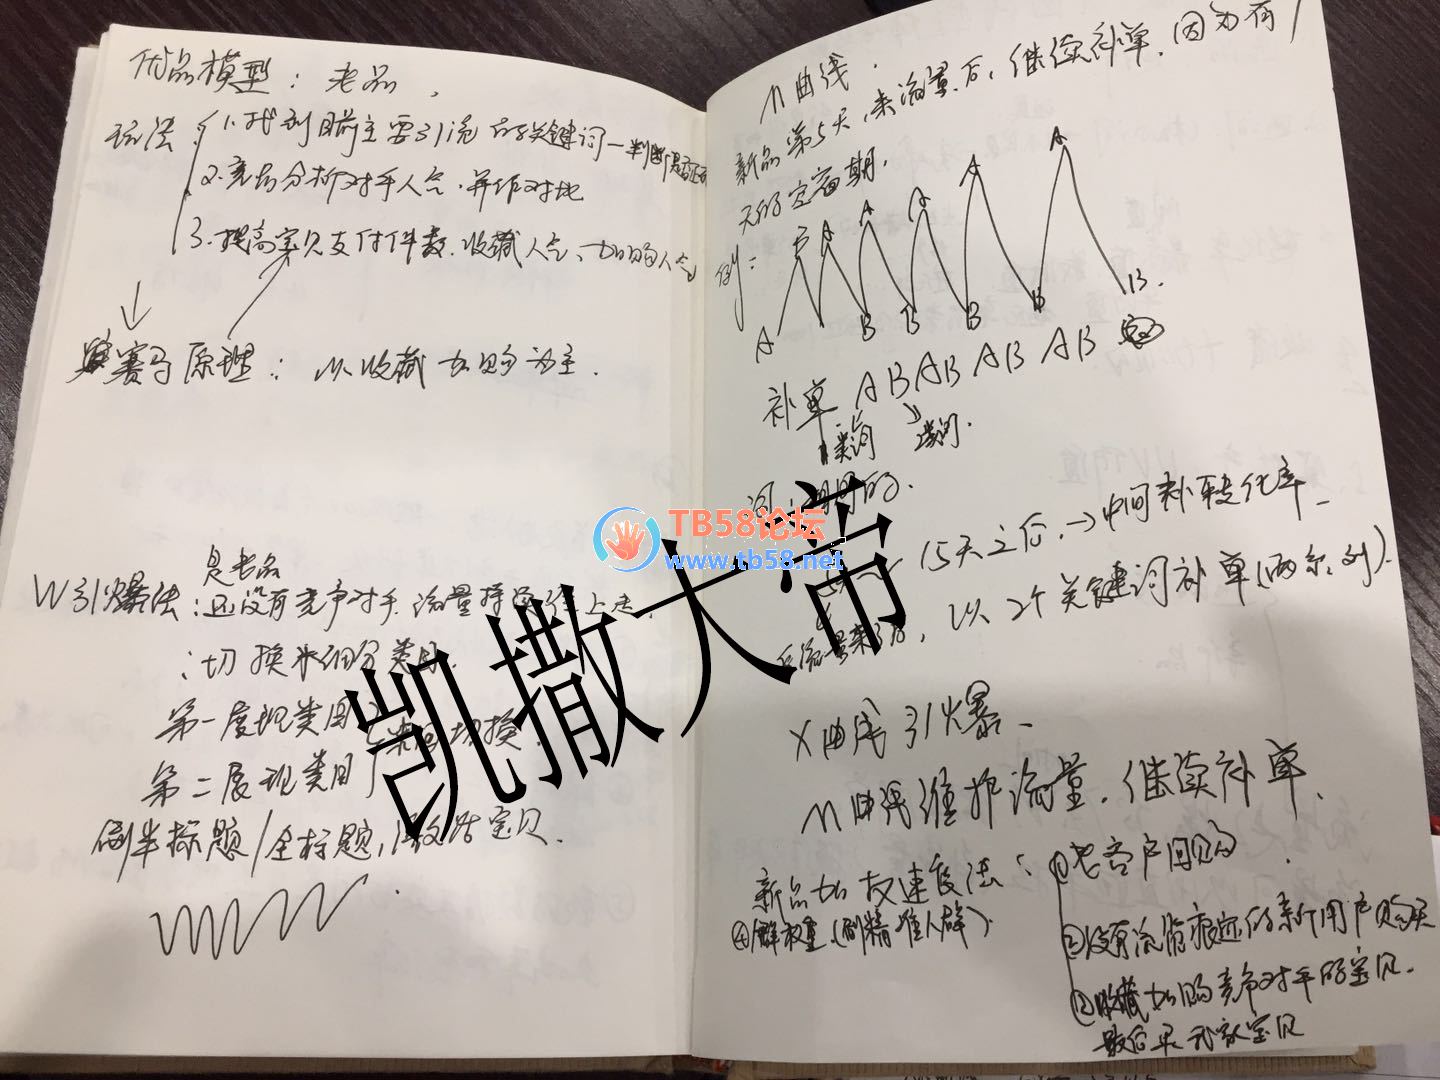 优品模型：老品，
玩法：1.找到目前主要引流的关键词—判断是否
2.竞品分析对手人气.并作对比
3.提高宝贝支付件数.收藏人气、加购人气
赛马原理：以收藏加购为主.
是老品
W引爆法：还没有竞争对手.流量持续往上走，
：切换细分类目.
第一展现类目
第二展现类目 来回切换.
倒半标题/全标题,宝贝.
n曲线.
新品第5天,来流量后,继续补单.因为有7
天的定期.
例：
A A A A A
A B B B B B.
补单 AB AB AB AB
类词
词：
15天之后.→中间补转化率.
流量来了后,以2个关键词补单(两条,列).
X曲线引爆.
n曲线维护流量.继续补单.
新品加权速度法：①老客户回购.
④解权重(刷精准人群)
②没有流览痕迹的新用户购买
③收藏加购竞争对手的宝贝.
最后买我家宝贝
TB58论坛
www.tb58.net
凯撒大帝